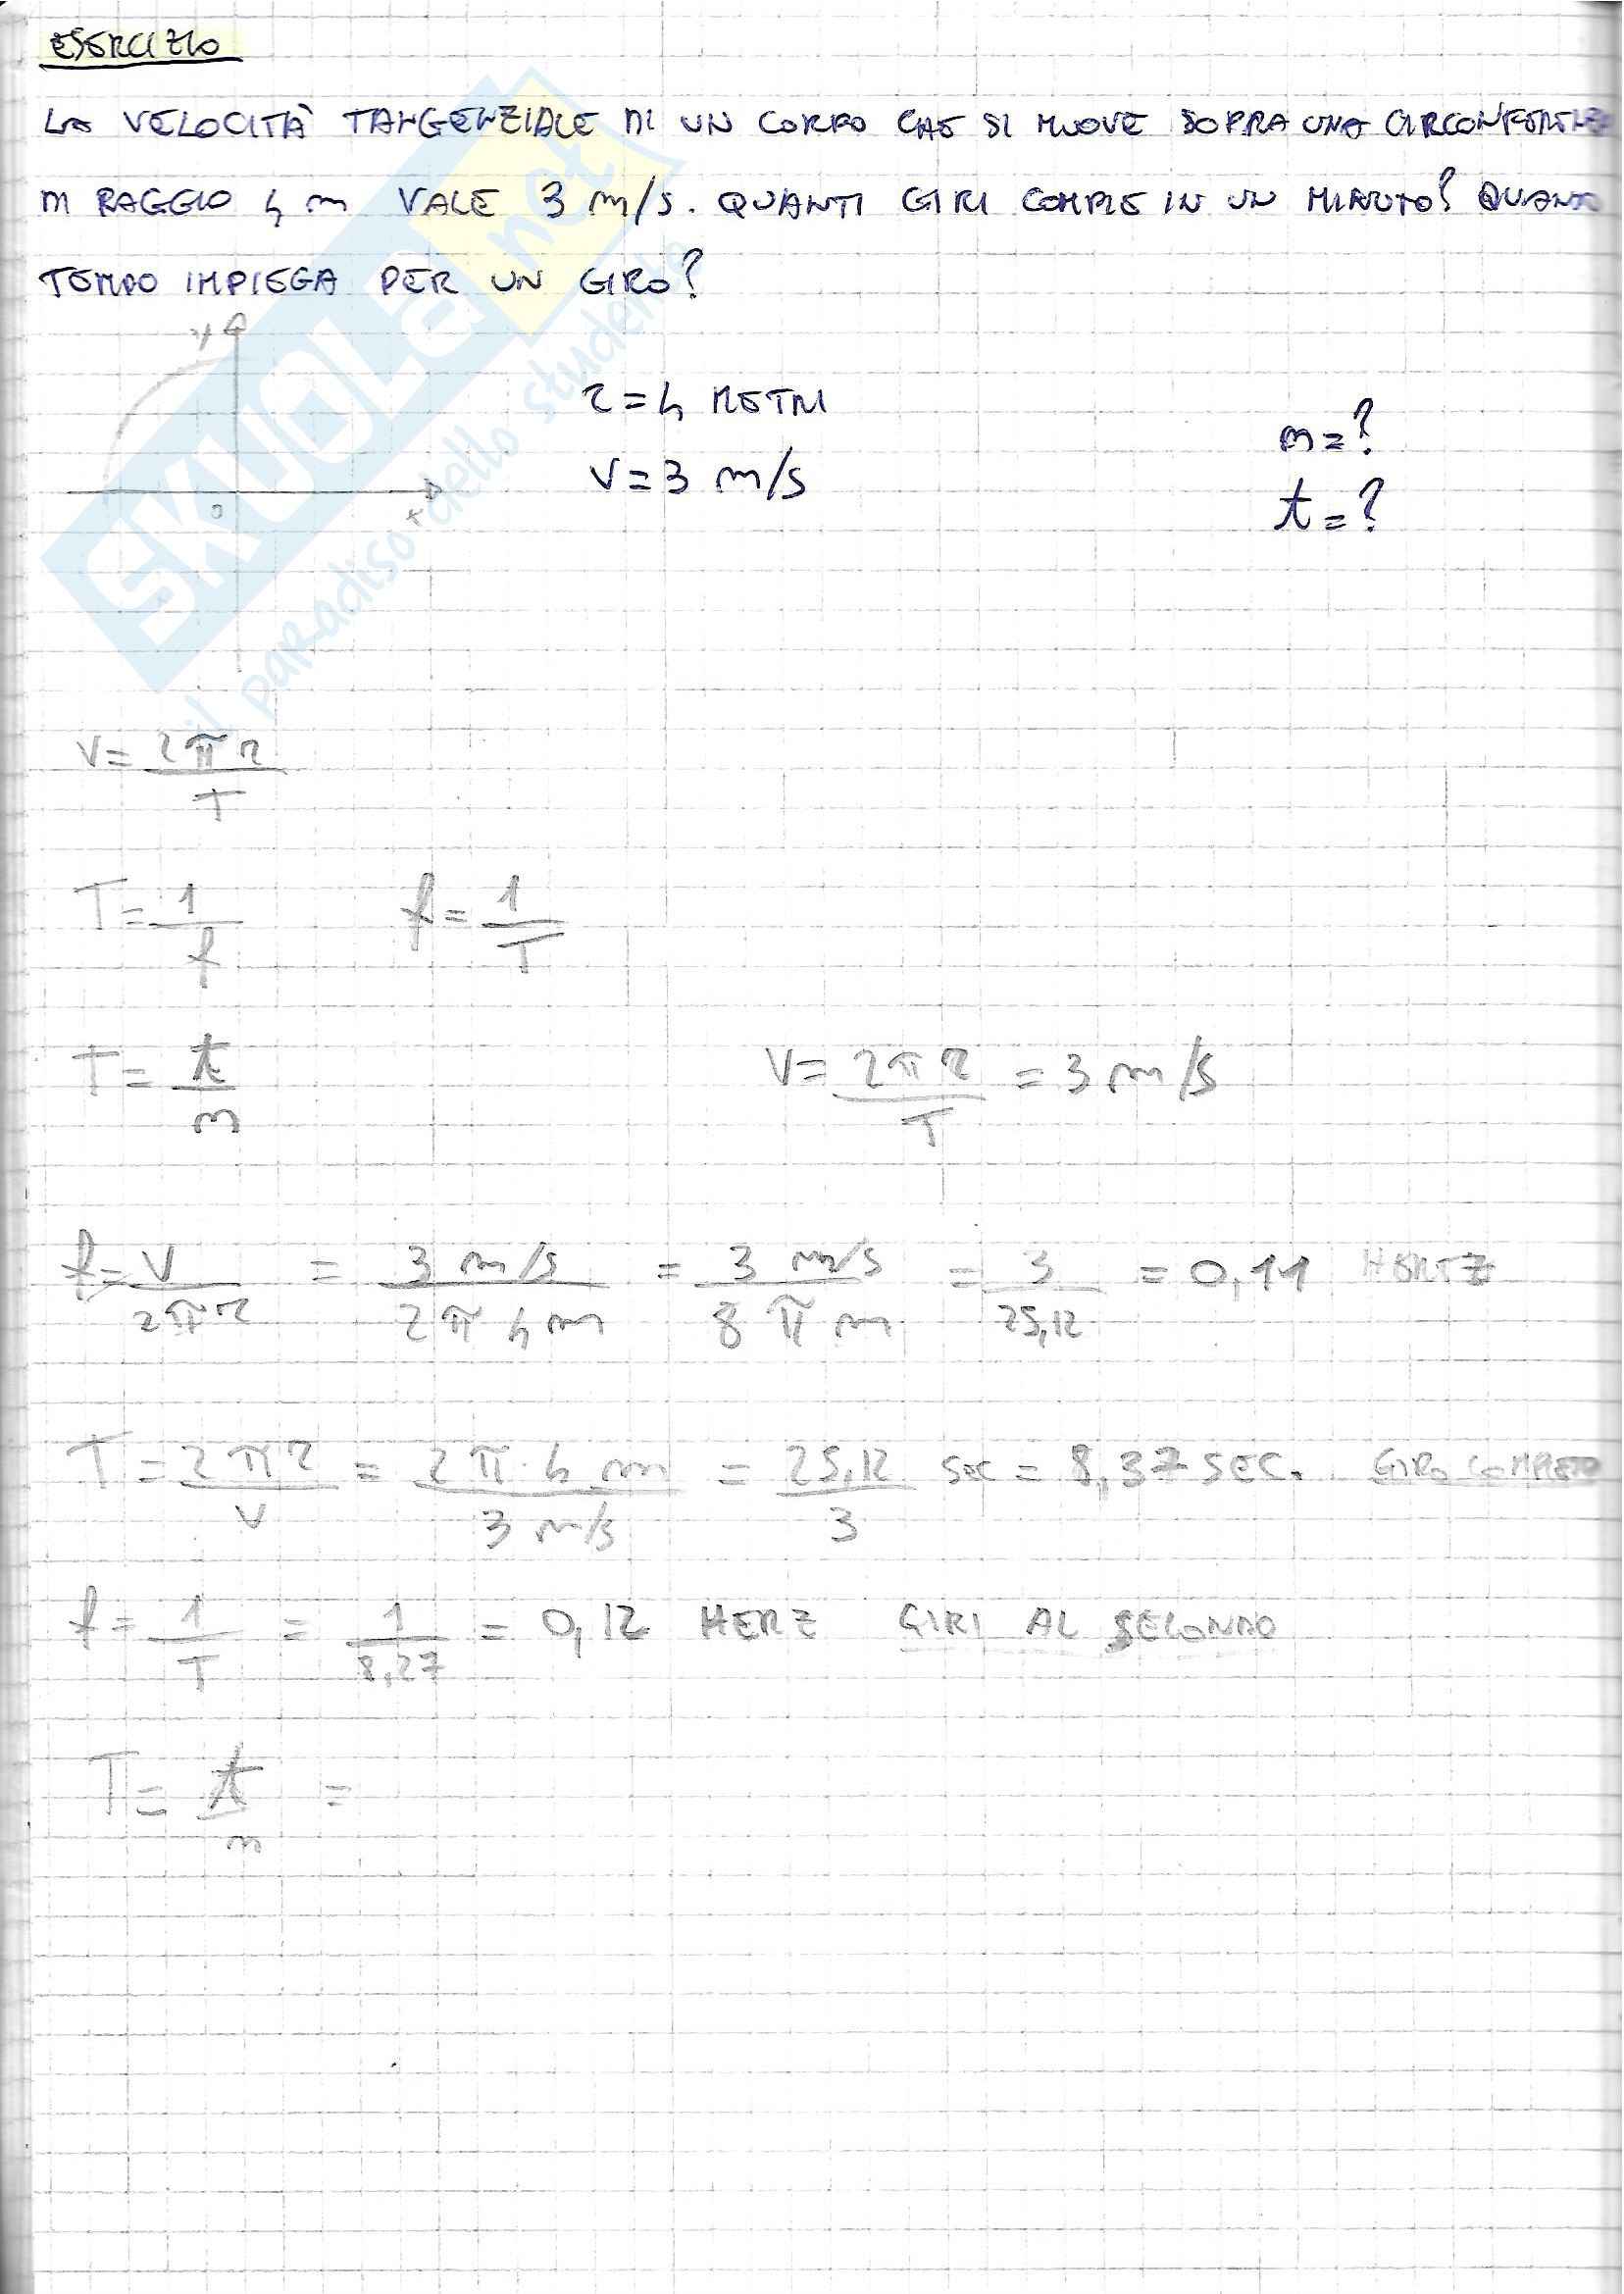 ESERCIZIO
LA VELOCITÀ TANGENZIALE DI UN CORPO CHE SI MUOVE SOPRA UNA CIRCONFERENZA
DI RAGGIO 4 m VALE 3 m/s. QUANTI GIRI COMPIE IN UN MINUTO? QUANTO
TEMPO IMPIEGA PER UN GIRO?
y
r = 4 METRI
n = ?
v = 3 m/s
t = ?
0 x
SKUOLA.net
il paradiso dello studente
V = 2πr / T
T = 1 / f f = 1 / T
T = t / n V = 2πr / T = 3 m/s
f = V / 2πr = 3 m/s / 2π 4 m = 3 m/s / 8 π m = 3 / 25,12 = 0,11 HERTZ
T = 2πr / V = 2π · 4 m / 3 m/s = 25,12 / 3 sec = 8,37 SEC. GIRO COMPLETO
f = 1 / T = 1 / 8,27 = 0,12 HERZ GIRI AL SECONDO
T = t / n =